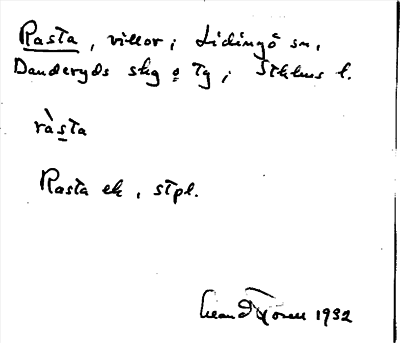 Rasta, villor; Lidingö sn,
Danderyds skg o Tg; Sthlms l.
ràsta
Rasta ek, stpl.
1932